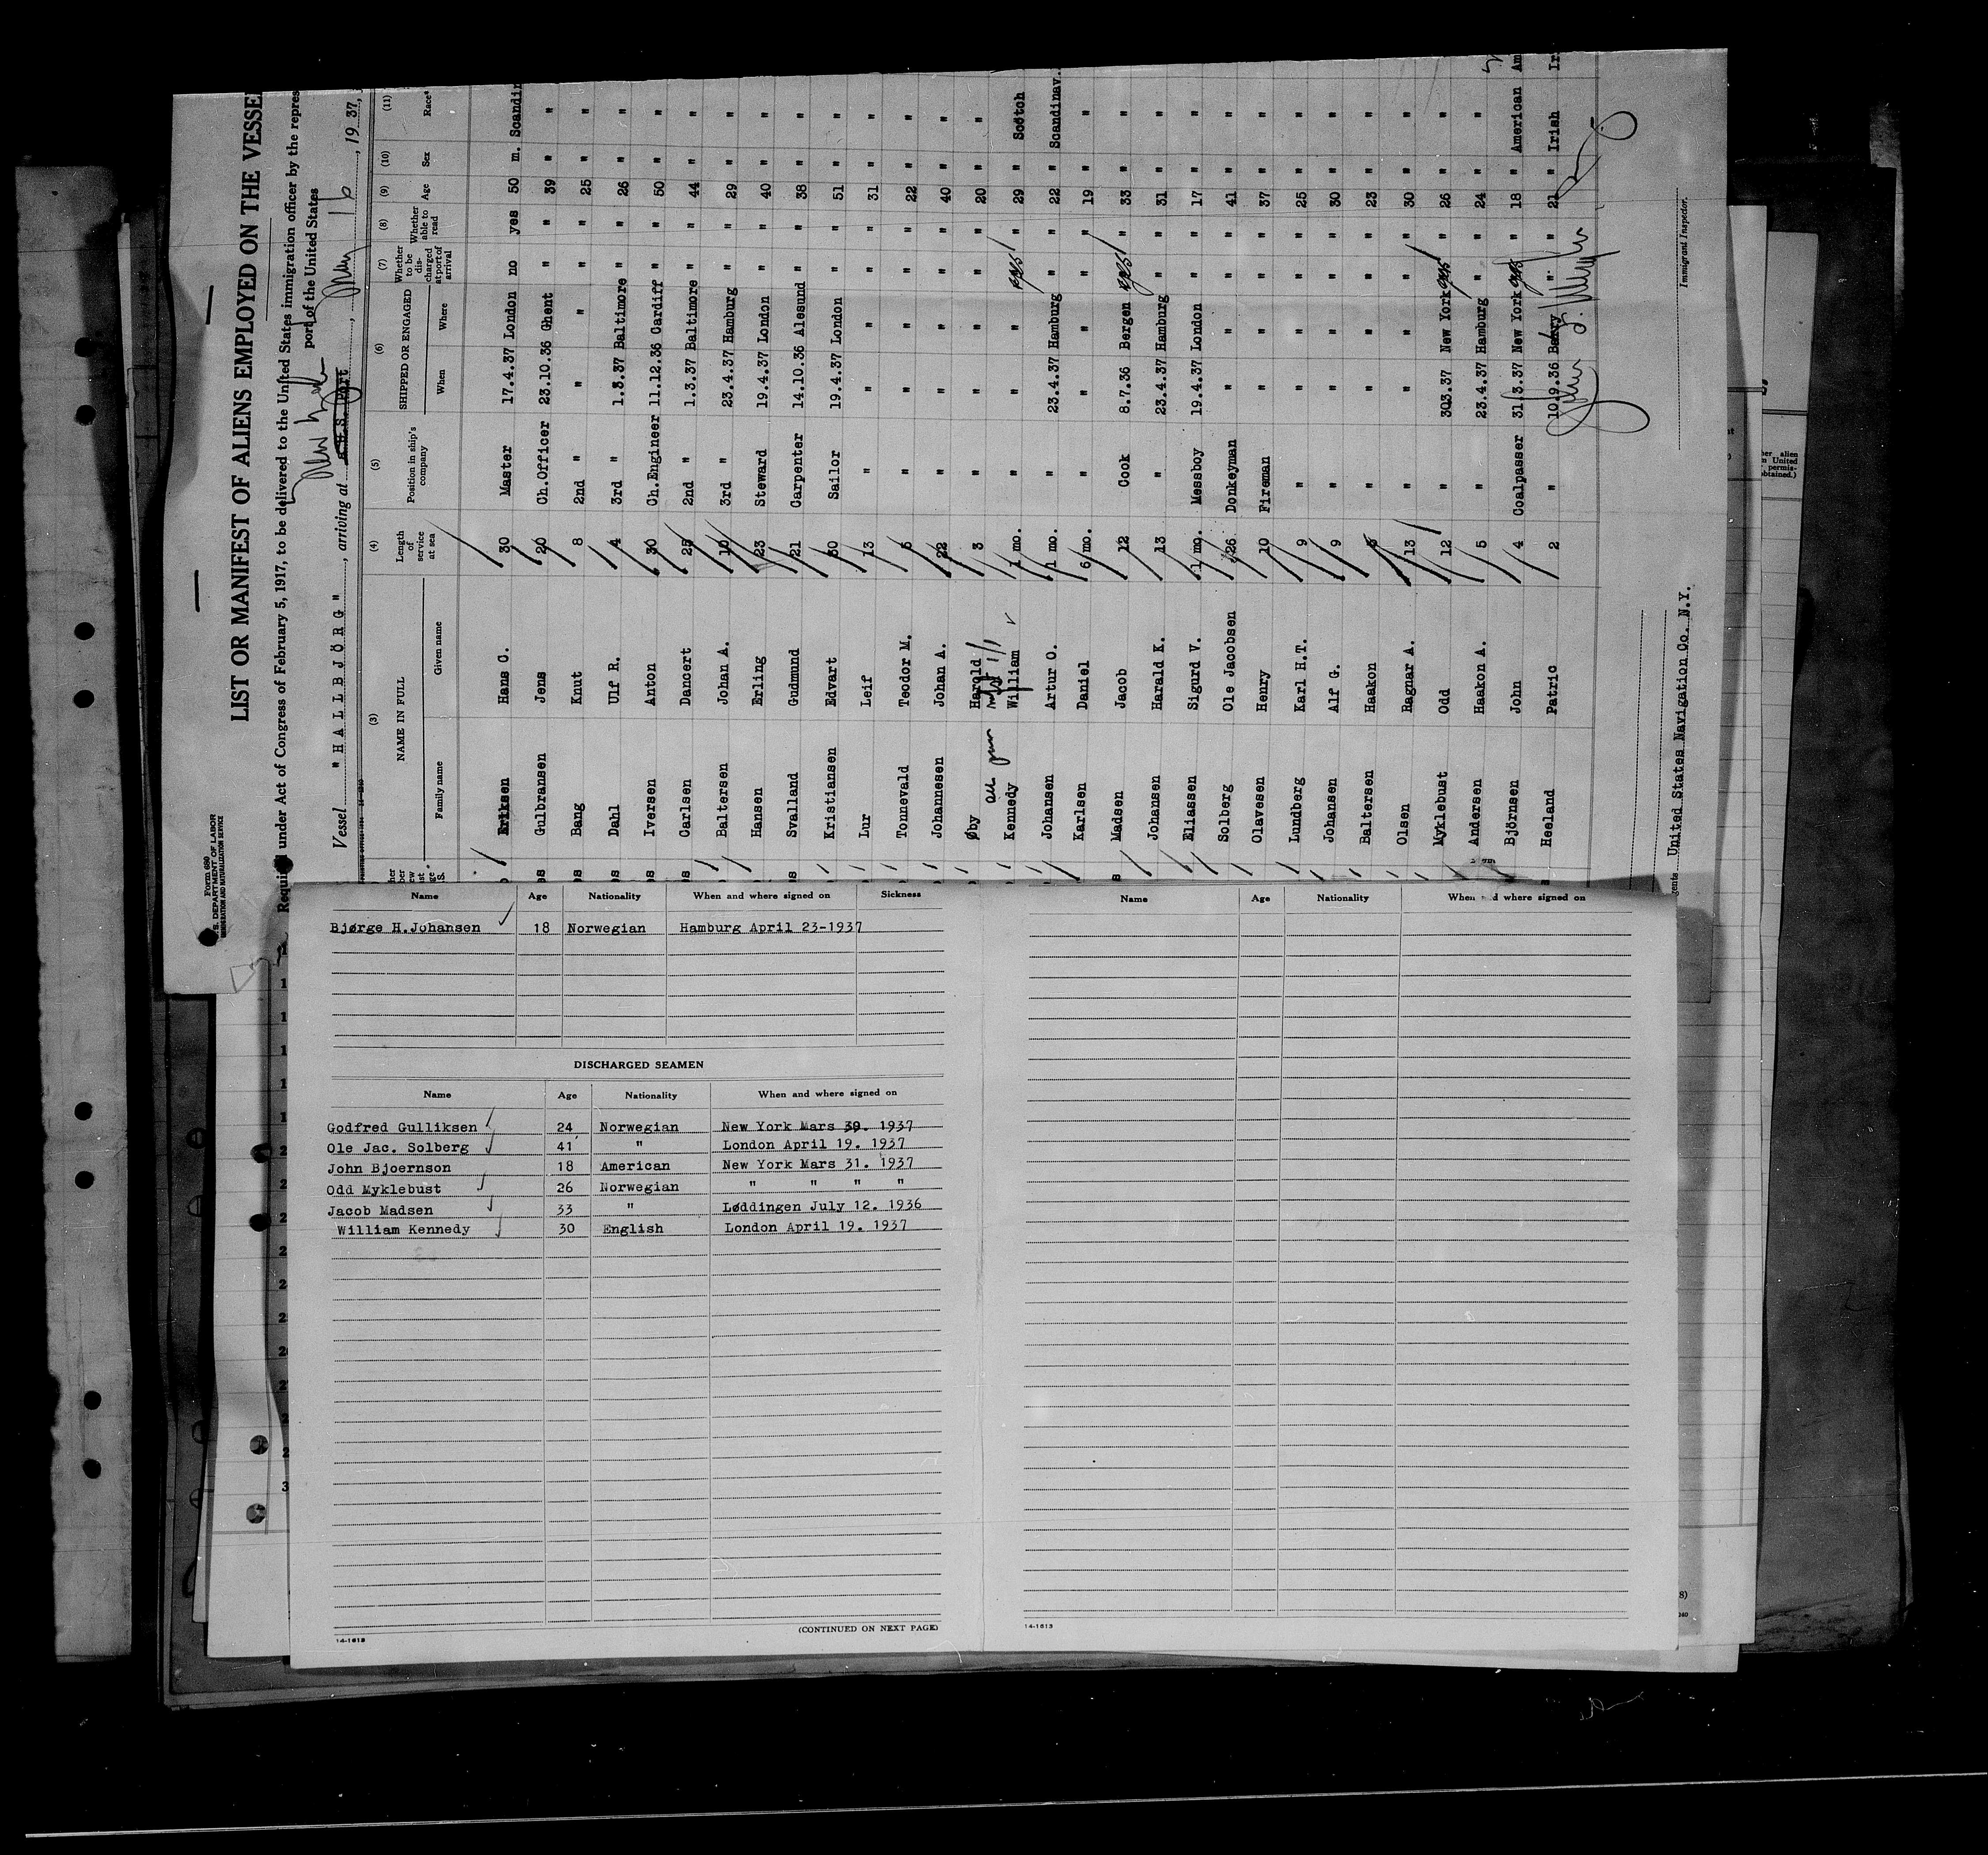 Form 680
U.S. DEPARTMENT OF LABOR
IMMIGRATION AND NATURALIZATION SERVICE
LIST OR MANIFEST OF ALIENS EMPLOYED ON THE VESSEL
under Act of Congress of February 5, 1917, to be delivered to the United States immigration officer by the
port of the United States
Vessel "HALLBJÖRG", arriving at New York, 1937,
(3) (4) (5) (6) (7) (8) (9) (10) (11)
NAME IN FULL Length of service at sea Position in ship's company SHIPPED OR ENGAGED Whether to be discharged at port of arrival Whether able to read Age Sex Race*
Family name Given name When Where
Eriksen Hans O. 30 Master 17.4.37 London no yes 50 m.
Gulbransen Jens 20 Ch.Officer 23.10.36 Ghent " " 39 " "
Bang Knut 8 2nd " " " " " 25 " "
Dahl Ulf R. 4 3rd " 1.3.37 Baltimore " " 26 " "
Iversen Anton 30 Ch.Engineer 11.12.36 Cardiff " " 50 " "
Carlsen Dancert 25 2nd " 1.3.37 Baltimore " " 44 " "
Baltersen Johan A. 10 3rd " 23.4.37 Hamburg " " 29 " "
Hansen Erling 23 Steward 19.4.37 London " " 40 " "
Svalland Gudmund 21 Carpenter 14.10.36 Alesund " " 38 " "
Kristiansen Edvart 30 Sailor 19.4.37 London " " 51 " "
Lur Leif 13 " " " " " 31 " "
Tonnevald Teodor M. 5 " " " " " 22 " "
Johannesen Johan A. 22 " " " " " 40 " "
Øby Harold 3 " " " " " 20 " "
Kennedy William 1 mo. " " " yes " 29 " Scotch
Johansen Artur O. 1 mo. " 23.4.37 Hamburg " " 22 " Scandinav.
Karlsen Daniel 6 mo. " " " " " 19 " "
Madsen Jacob 12 Cook 8.7.36 Bergen yes " 33 " "
Johansen Harald K. 13 " 23.4.37 Hamburg " " 31 " "
Eliassen Sigurd V. 1 mo. Messboy 19.4.37 London " " 17 " "
Solberg Ole Jacobsen 26 Donkeyman " " " " 41 " "
Olavesen Henry 10 Fireman " " " " 37 " "
Lundberg Karl H.T. 9 " " " " " 25 " "
Johansen Alf G. 9 " " " " " 30 " "
Baltersen Haakon " " " " " 23 " "
Olsen Ragnar A. 13 " " " " " 30 " "
Myklebust Odd 12 " 303.37 New York yes " 26 " "
Andersen Haakon A. 5 " 23.4.37 Hamburg " " 24 " "
Björnsen John 4 Coalpasser 31.3.37 New York yes " 18 " American
Heeland Patric 2 " 10.9.36 Barry " " 21 " Irish
Immigrant Inspector.
United States Navigation Co. N.Y.
Name Age Nationality When and where signed on Sickness
Bjørge H.Johansen 18 Norwegian Hamburg April 23-1937
DISCHARGED SEAMEN
Name Age Nationality When and where signed on
Godfred Gulliksen 24 Norwegian New York Mars 30. 1937
Ole Jac. Solberg 41 " London April 19. 1937
John Bjoernson 18 American New York Mars 31. 1937
Odd Myklebust 26 Norwegian " " " "
Jacob Madsen 33 " Løddingen July 12. 1936
William Kennedy 30 English London April 19. 1937
(CONTINUED ON NEXT PAGE)
14-1613
Name Age Nationality When and where signed on
14-1613